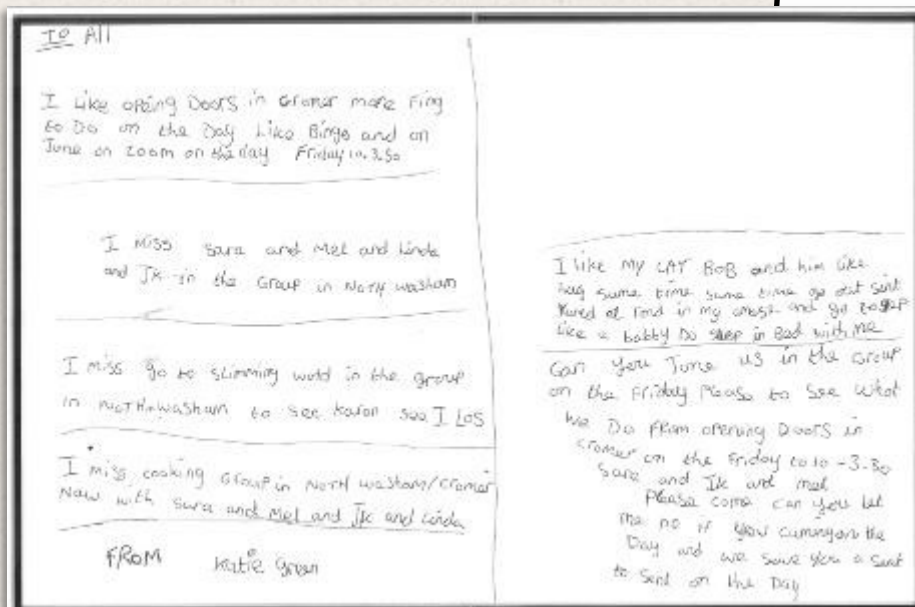 To All
I Like opeing Doors in cromer more Fing
to Do on the Day Like Bingo and on
June on Zoom on the day Friday 10.3.30
I miss Sara and Mel and Linda
and Jk in the Group in North washam
I miss go to slimming wold in the group
in north washam to see karon see I LOS
I miss cooking Group in North washam/cromer
Now with Sara and Mel and Jk and Linda
FROM Katie Green
I like MY CAT BOB and him like
hug same time same time go out
in my and go to
Like a babby Do sleep in Bed with me
Can you June us in the Group
on the Friday Please to See What
We Do FROM opening Doors in
cromer on the Friday to 10-3-30
Sara and Jk and mel
Please come can you let
me no if you cuming on the
Day and we save you a
to on the Day